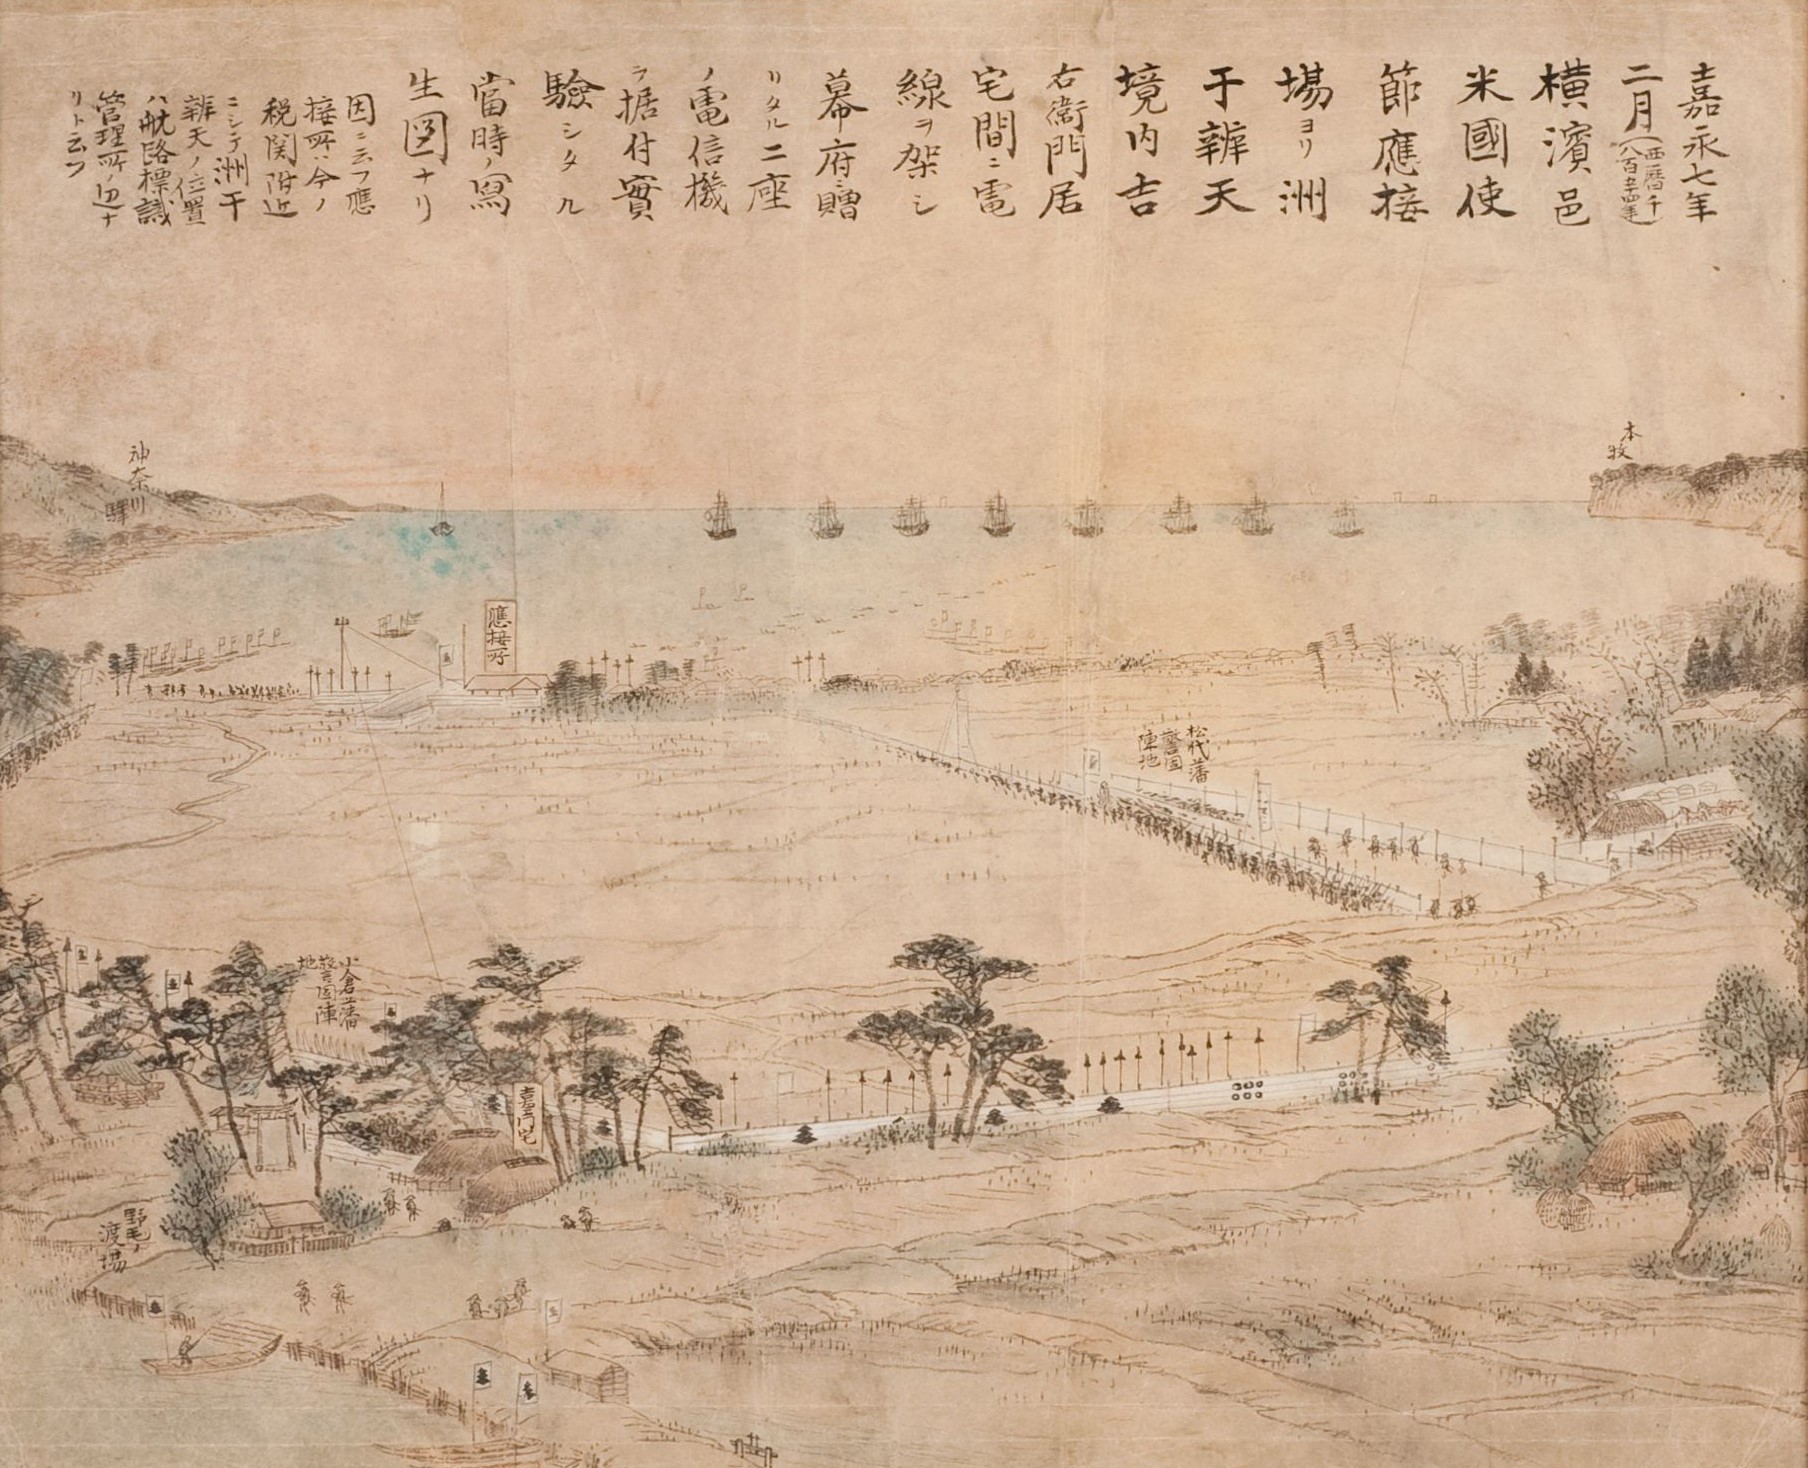 嘉永七年
二月(西暦千
八百五十四年)
横濱邑
米國使
節應接
場ヨリ洲
干辨天
境内吉
右衛門居
宅間ニ電
線ヲ架シ
幕府ニ贈
リタル二座
ノ電信機
ヲ据付實
驗シタル
當時ノ寫
生図ナリ
因ニ云フ應
接所ハ今ノ
税関附近
ニシテ洲干
辨天ノ位置
ハ航路標識
管理所ノ辺ナ
リト云フ
本牧
神奈川
驛
應接所
松代藩
警固
陣地
小倉藩
警固陣
地
吉右衛門宅
野毛ノ
渡場